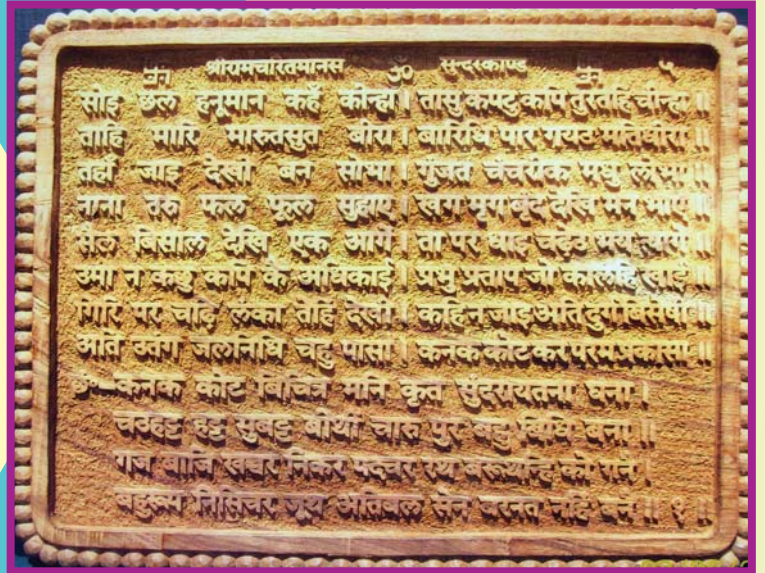 श्रीरामचरितमानस ॐ सुन्दरकाण्ड ५
सोइ छल हनूमान कहँ कीन्हा। तासु कपटु कपि तुरतहिं चीन्हा॥
ताहि मारि मारुतसुत बीरा। बारिधि पार गयउ मतिधीरा॥
तहाँ जाइ देखी बन सोभा। गुंजत चंचरीक मधु लोभा॥
नाना तरु फल फूल सुहाए। खग मृग बृंद देखि मन भाए॥
सैल बिसाल देखि एक आगें। ता पर धाइ चढ़ेउ भय त्यागें॥
उमा न कछु कपि कै अधिकाई। प्रभु प्रताप जो कालहि खाई॥
गिरि पर चढ़ि लंका तेहिं देखी। कहि न जाइ अति दुर्ग बिसेषी॥
अति उतंग जलनिधि चहु पासा। कनक कोट कर परम प्रकासा॥
छं०—कनक कोट बिचित्र मनि कृत सुंदरायतना घना।
चउहट्ट हट्ट सुबट्ट बीथीं चारु पुर बहु बिधि बना॥
गज बाजि खच्चर निकर पदचर रथ बरूथन्हि को गनै।
बहुरूप निसिचर जूथ अतिबल सेन बरनत नहिं बनै॥ १॥